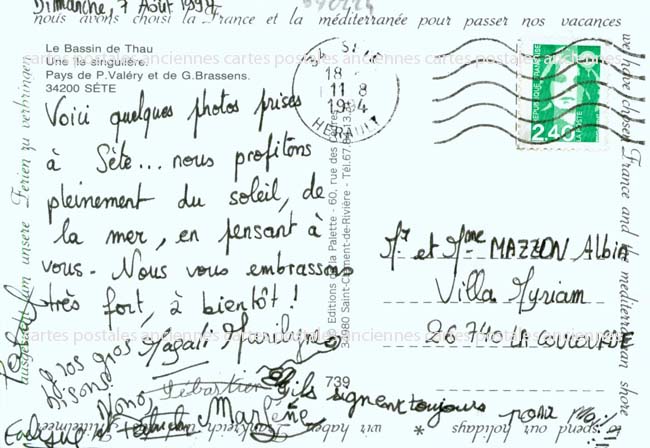 Dimanche, 7 Août 1994
nous avons choisi la France et la méditerranée pour passer nos vacances
Le Bassin de Thau
Une île singulière.
Pays de P.Valéry et de G.Brassens.
34200 SÈTE
cartes postales anciennes cartes postales anciennes cartes postales anciennes
Voici quelques photos prises
à Sète... nous profitons
pleinement du soleil, de
la mer, en pensant à
vous. Nous vous embrassons
très fort, à bientôt!
Magali Marilyne
Gros gros
bisous
Nono,
Sébastien
Marlène
ils signent toujours pour moi!!
18
11 8
1994
HERAULT
RÉPUBLIQUE FRANÇAISE
2,40
LA POSTE
Mr et Mme MAZZON Albin
Villa Myriam
26 740 LA COUCOURDE
Editions de la Palette - 60, rue des
34980 Saint-Clément-de-Rivière - Tél.67.84.13.
739
cartes postales anciennes cartes postales anciennes cartes postales anciennes
we have chosen France and the mediterranean shore
to spend our holidays * wir haben
unsere Ferien zu verbringen